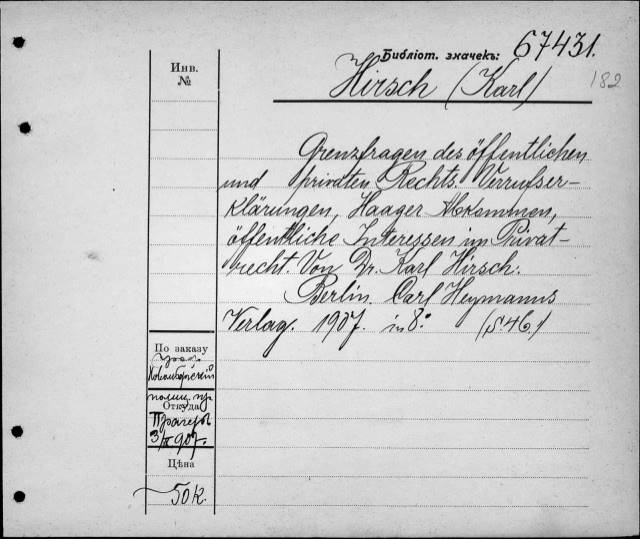 Библіот. значекъ: 67431.
Инв.
№
Hirsch (Karl)
182
Grenzfragen des öffentlichen
und privaten Rechts. Verrufser-
klärungen, Haager Abkommen,
öffentliche Interessen im Privat-
recht. Von Dr. Karl Hirsch.
Berlin. Carl Heymanns
Verlag. 1907. in 8.° (S 46.)
По заказу
Откуда
3/II 907.
Цѣна
50 к.